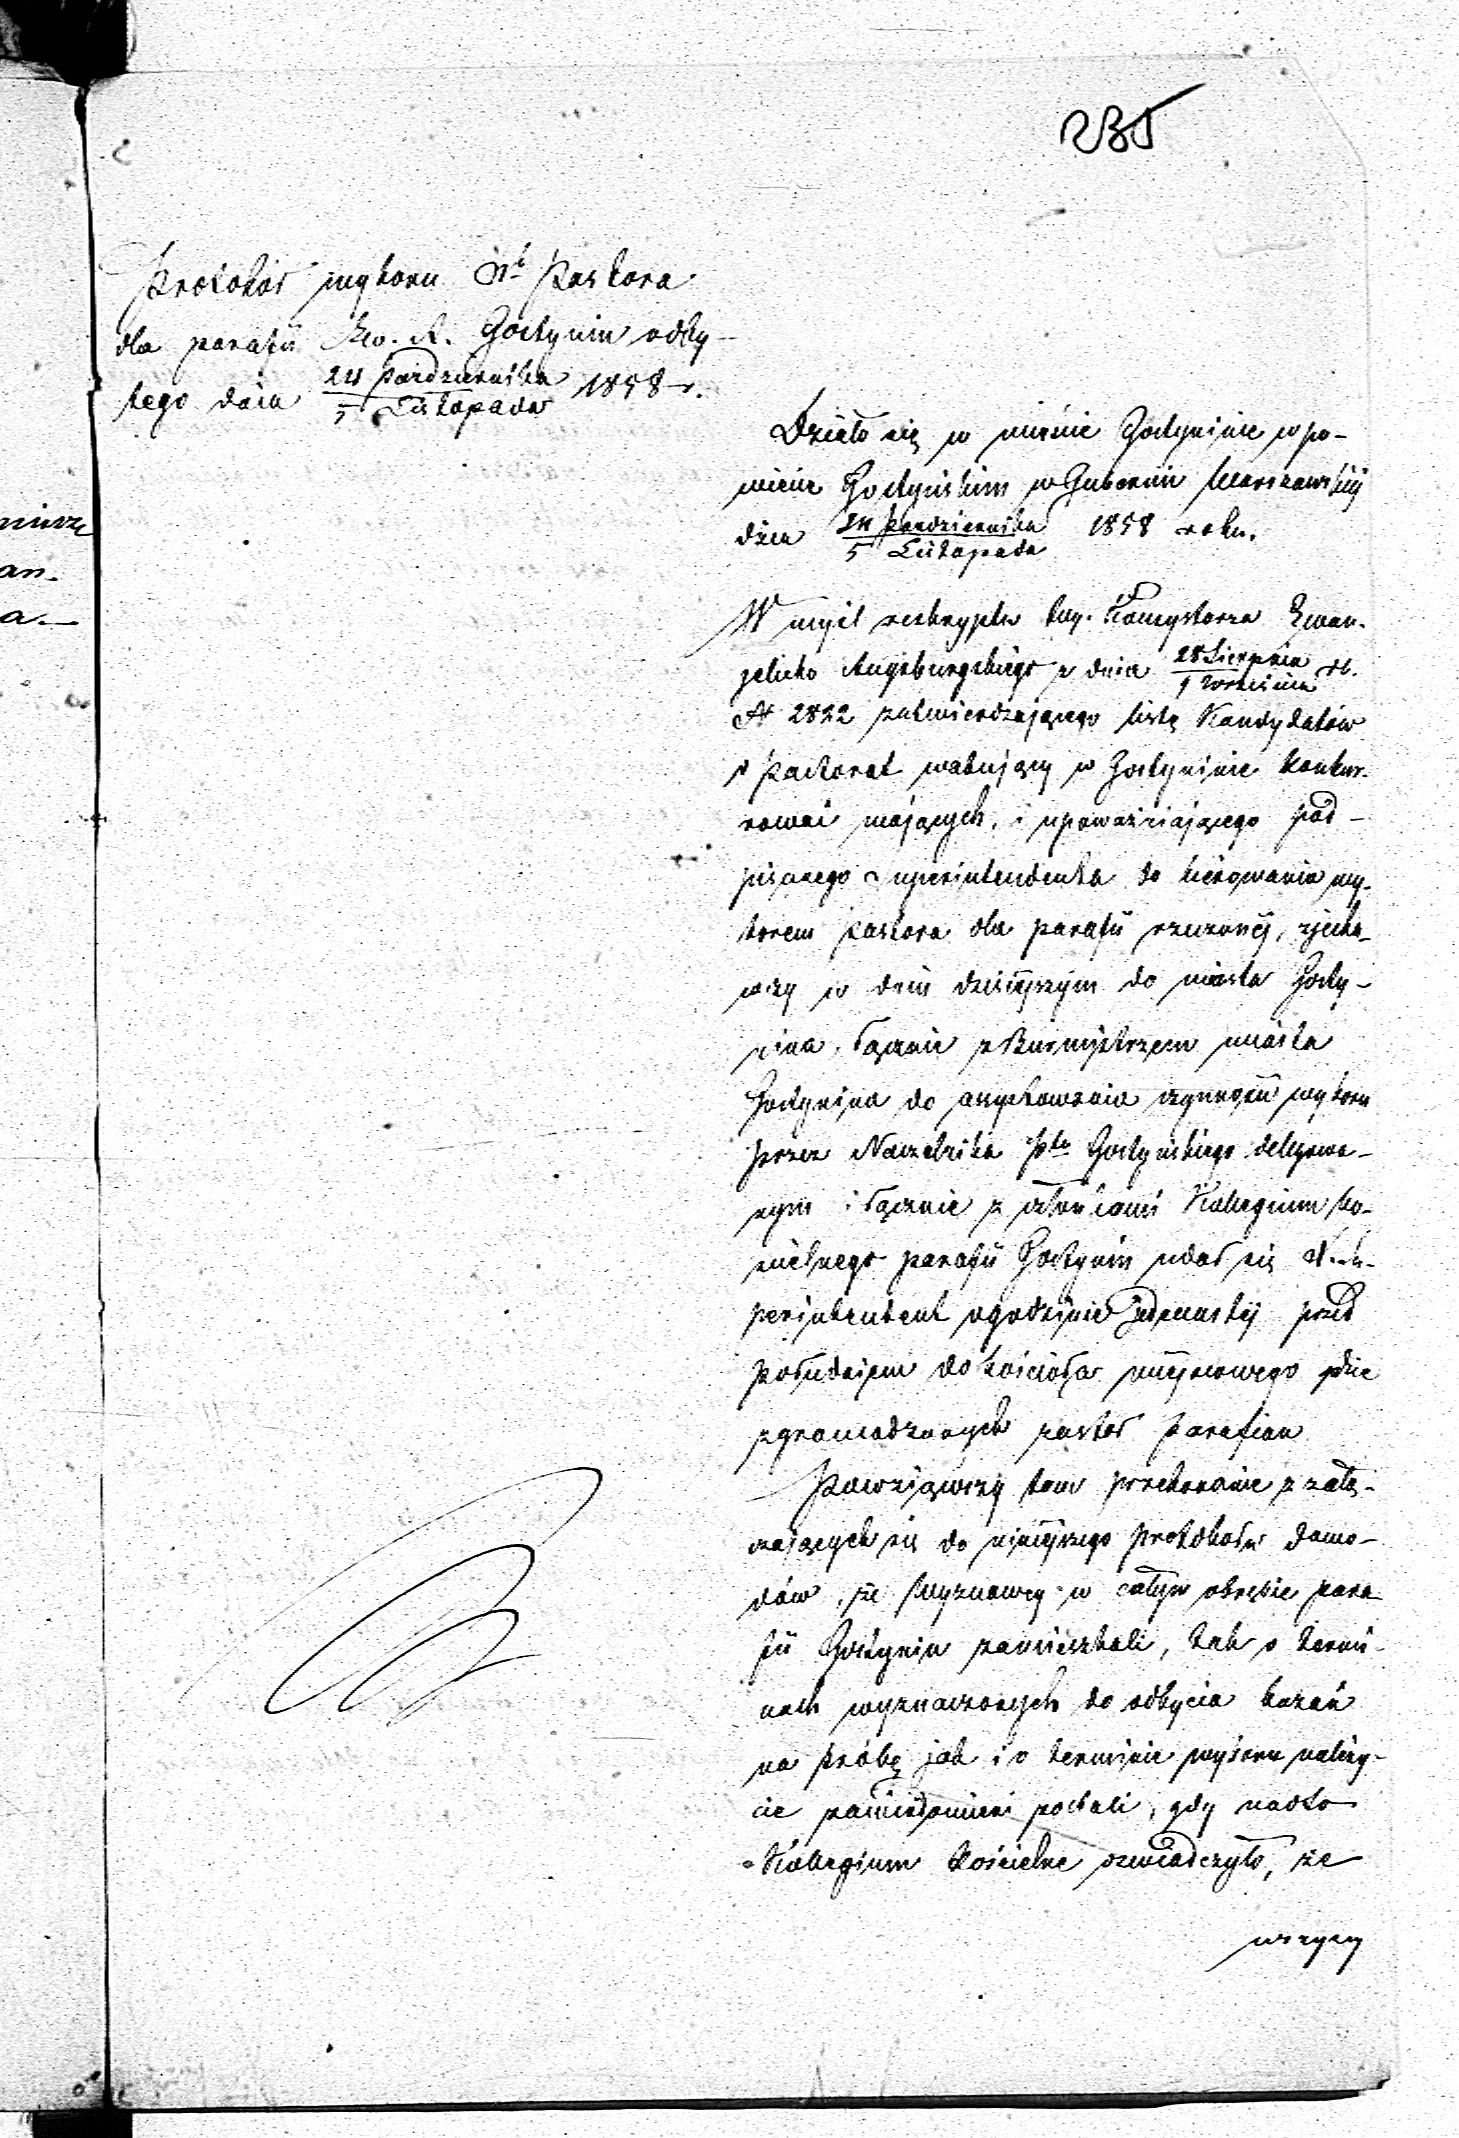 235
Protokół wyboru Nº Pastora
dla parafii Ew. A. Gostynin odby-
tego dnia 24 Października / 5 Listopada 1858 r.
Działo się w mieście Gostyninie w po-
wiecie Gostyńskim w Gubernii Warszawskiej
dnia 24 Października / 5 Listopada 1858 roku.
W myśl reskryptu Konsystorza Ewan-
gelicko Augsburgskiego z dnia 28 Sierpnia / 9 Września rb.
N 2822 zatwierdzającego listę Kandydatów
o pastorat wakujący w Gostyninie konkur-
rować mających, i upoważniającego pod-
pisanego Superintendenta do kierowania wy-
borem pastora dla parafii rzeczonej, zjecha-
wszy w dniu dzisiejszym do miasta Gosty-
nina, łącznie z Burmistrzem miasta
Gostynina do asystowania czynności wyboru
przez Naczelnika Ptu Gostyńskiego delegowa-
nym i łącznie z członkami Kolegium Ko-
ścielnego parafii Gostynin udał się Su-
perintendent o godzinie jedenastej przed
południem do kościoła miejscowego gdzie
zgromadzonych zastał Parafian
Powziąwszy tam przekonanie z załą-
czających się do niniejszego protokołu dowo-
dów, że Wyznawcy w całym obrębie para-
fii Gostynin zamieszkali, tak o termi-
nach wyznaczonych do odbycia kazań
na próbę jak i o terminie wyboru należy-
cie zawiadomieni zostali, gdy nadto
Kolegium Kościelne oświadczyło, że
wszyscy